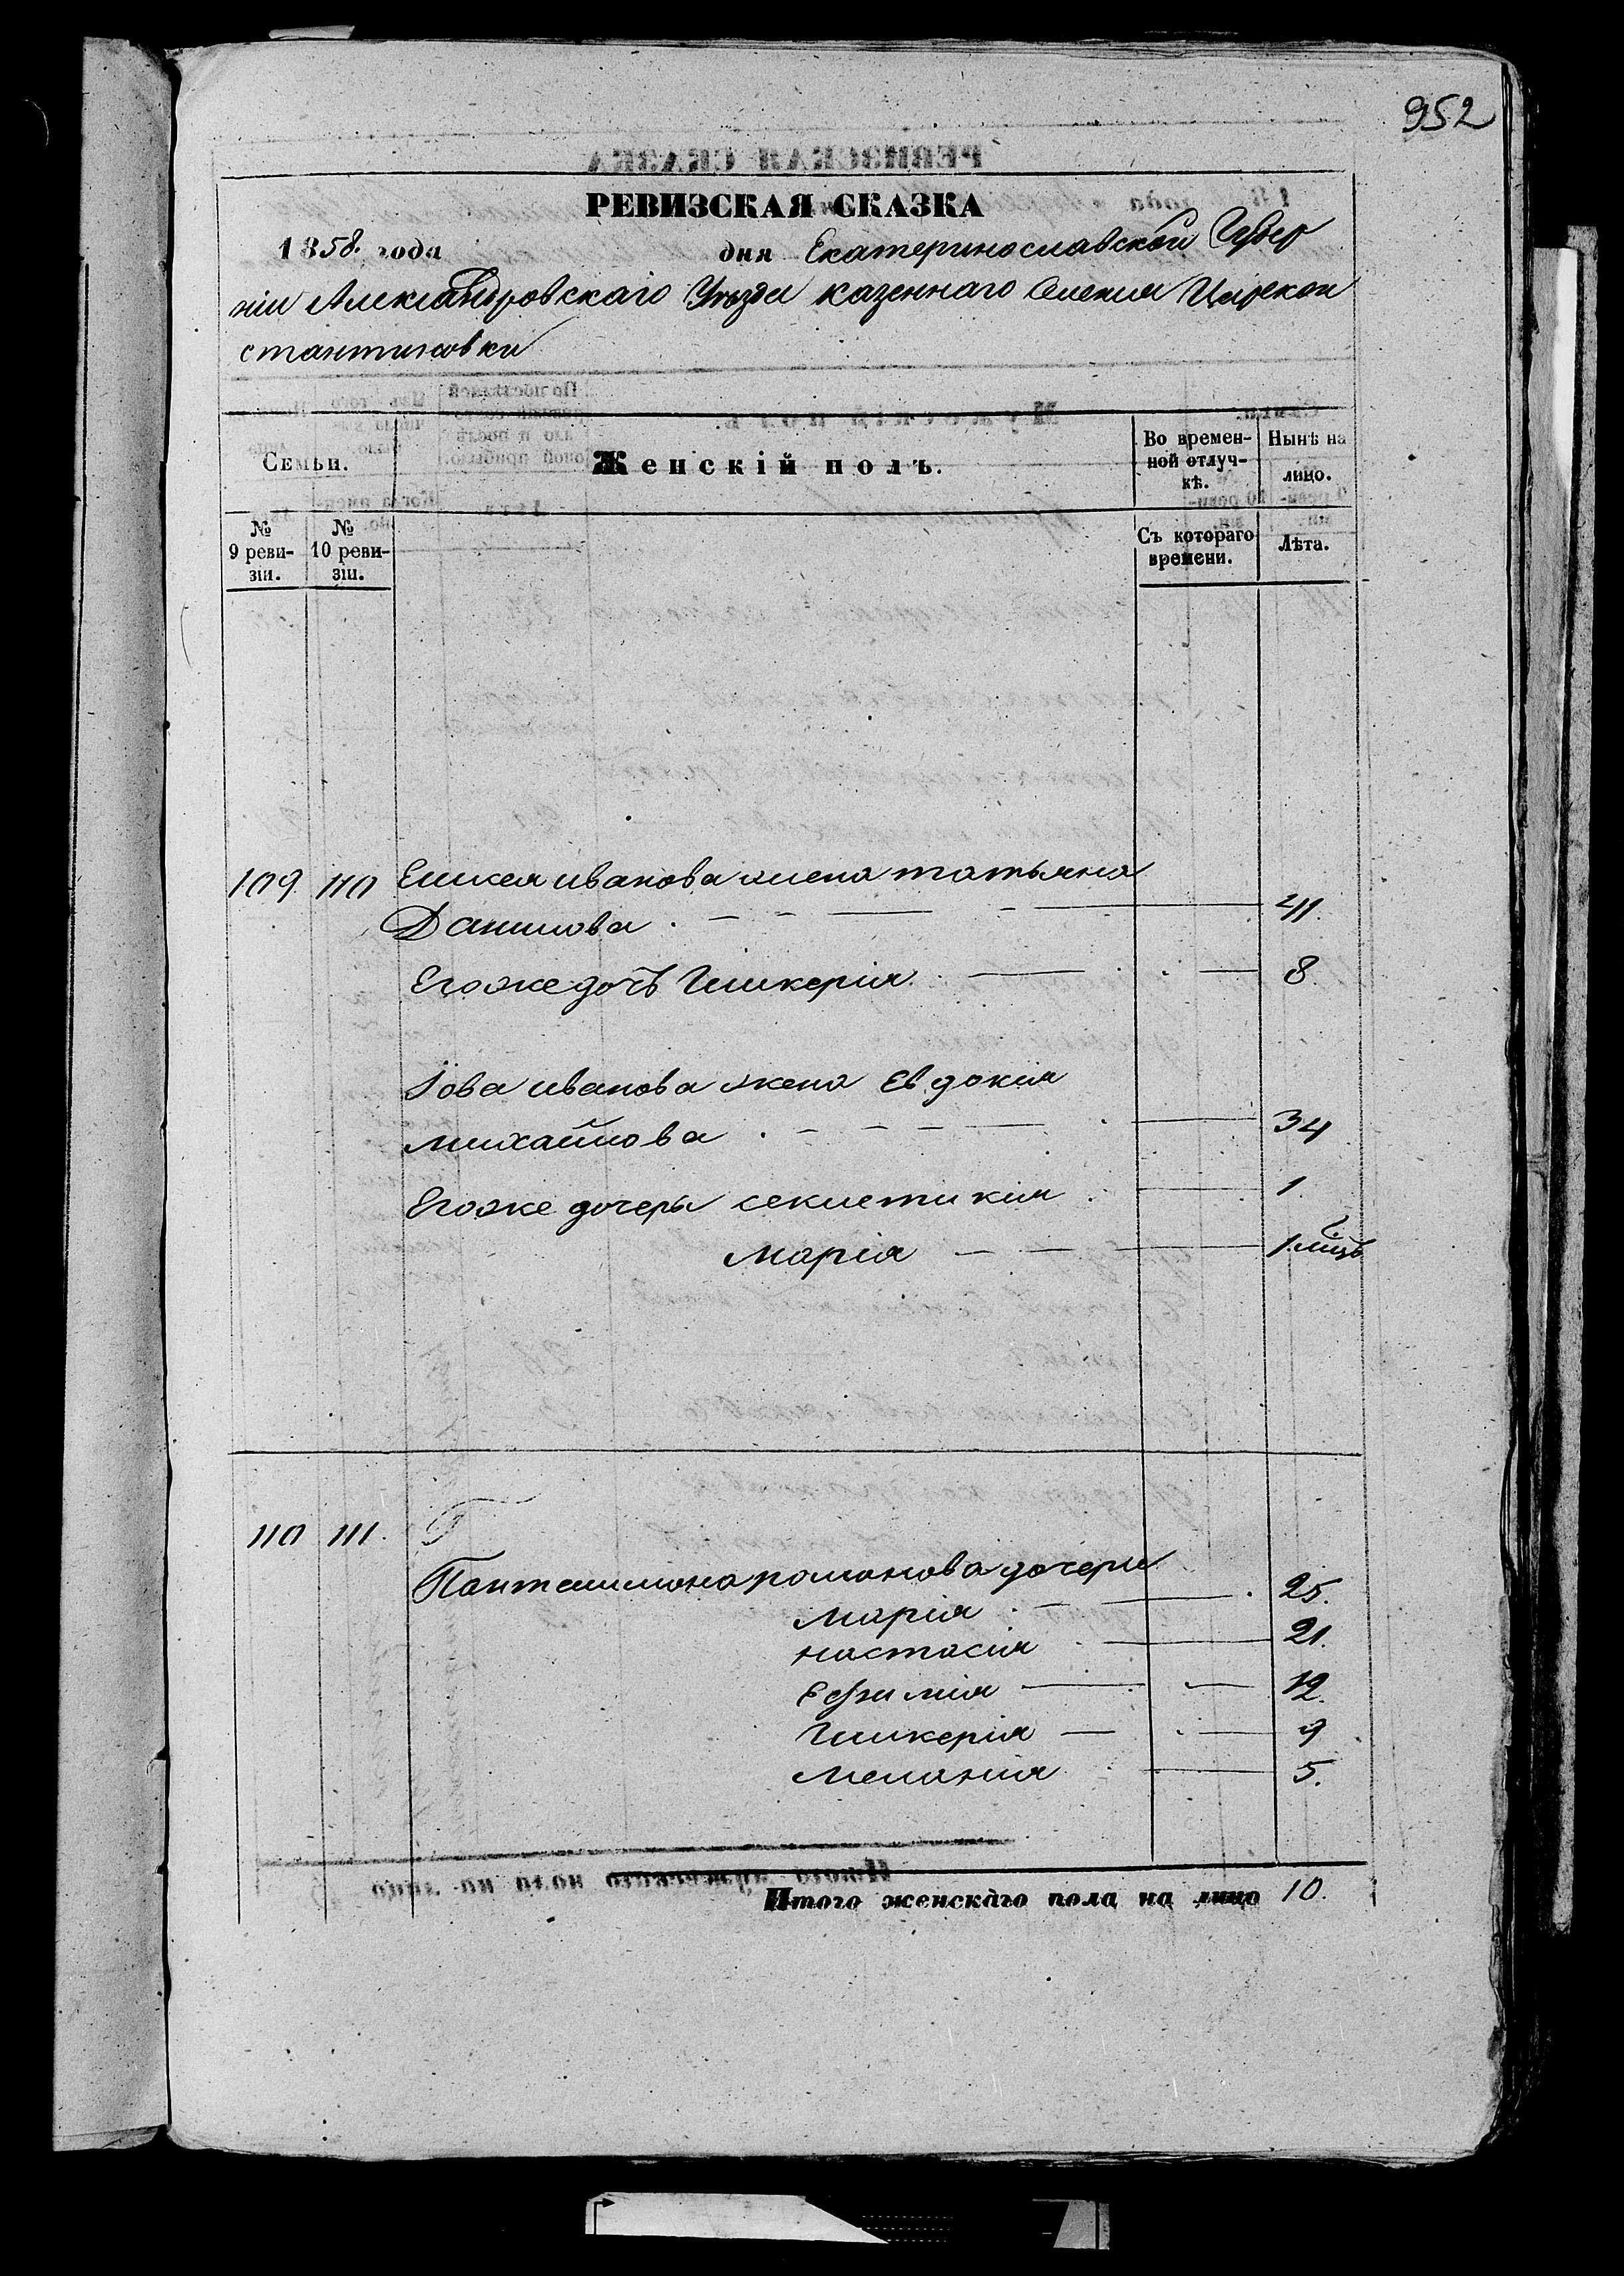 952
РЕВИЗСКАЯ СКАЗКА
1858. года дня Екатеринославской Губер
ніи Александровскаго Уѣзда казеннаго Селенія Цареκон
стантиновки
Семьи.
Женскій полъ.
Во времен-
ной отлуч-
кѣ.
Нынѣ на
лицо.
№
9 реви-
зіи.
№
10 реви-
зіи.
Съ котораго
времени.
Лѣта.
109. 110 Елисея иванова жена татьяна
Данилова 41.
Егоже дочь Гликерія 8.
Іова иванова жена Евдокія
михайлова 34
Егоже дочери секлетикія 1.
марія 1 мѣць
110 111.
Пантелимона романова дочери
марія 25.
настасія 21.
Ефимія 12.
Гликерія 9
меланія 5.
Итого женскаго пола на лицо 10.